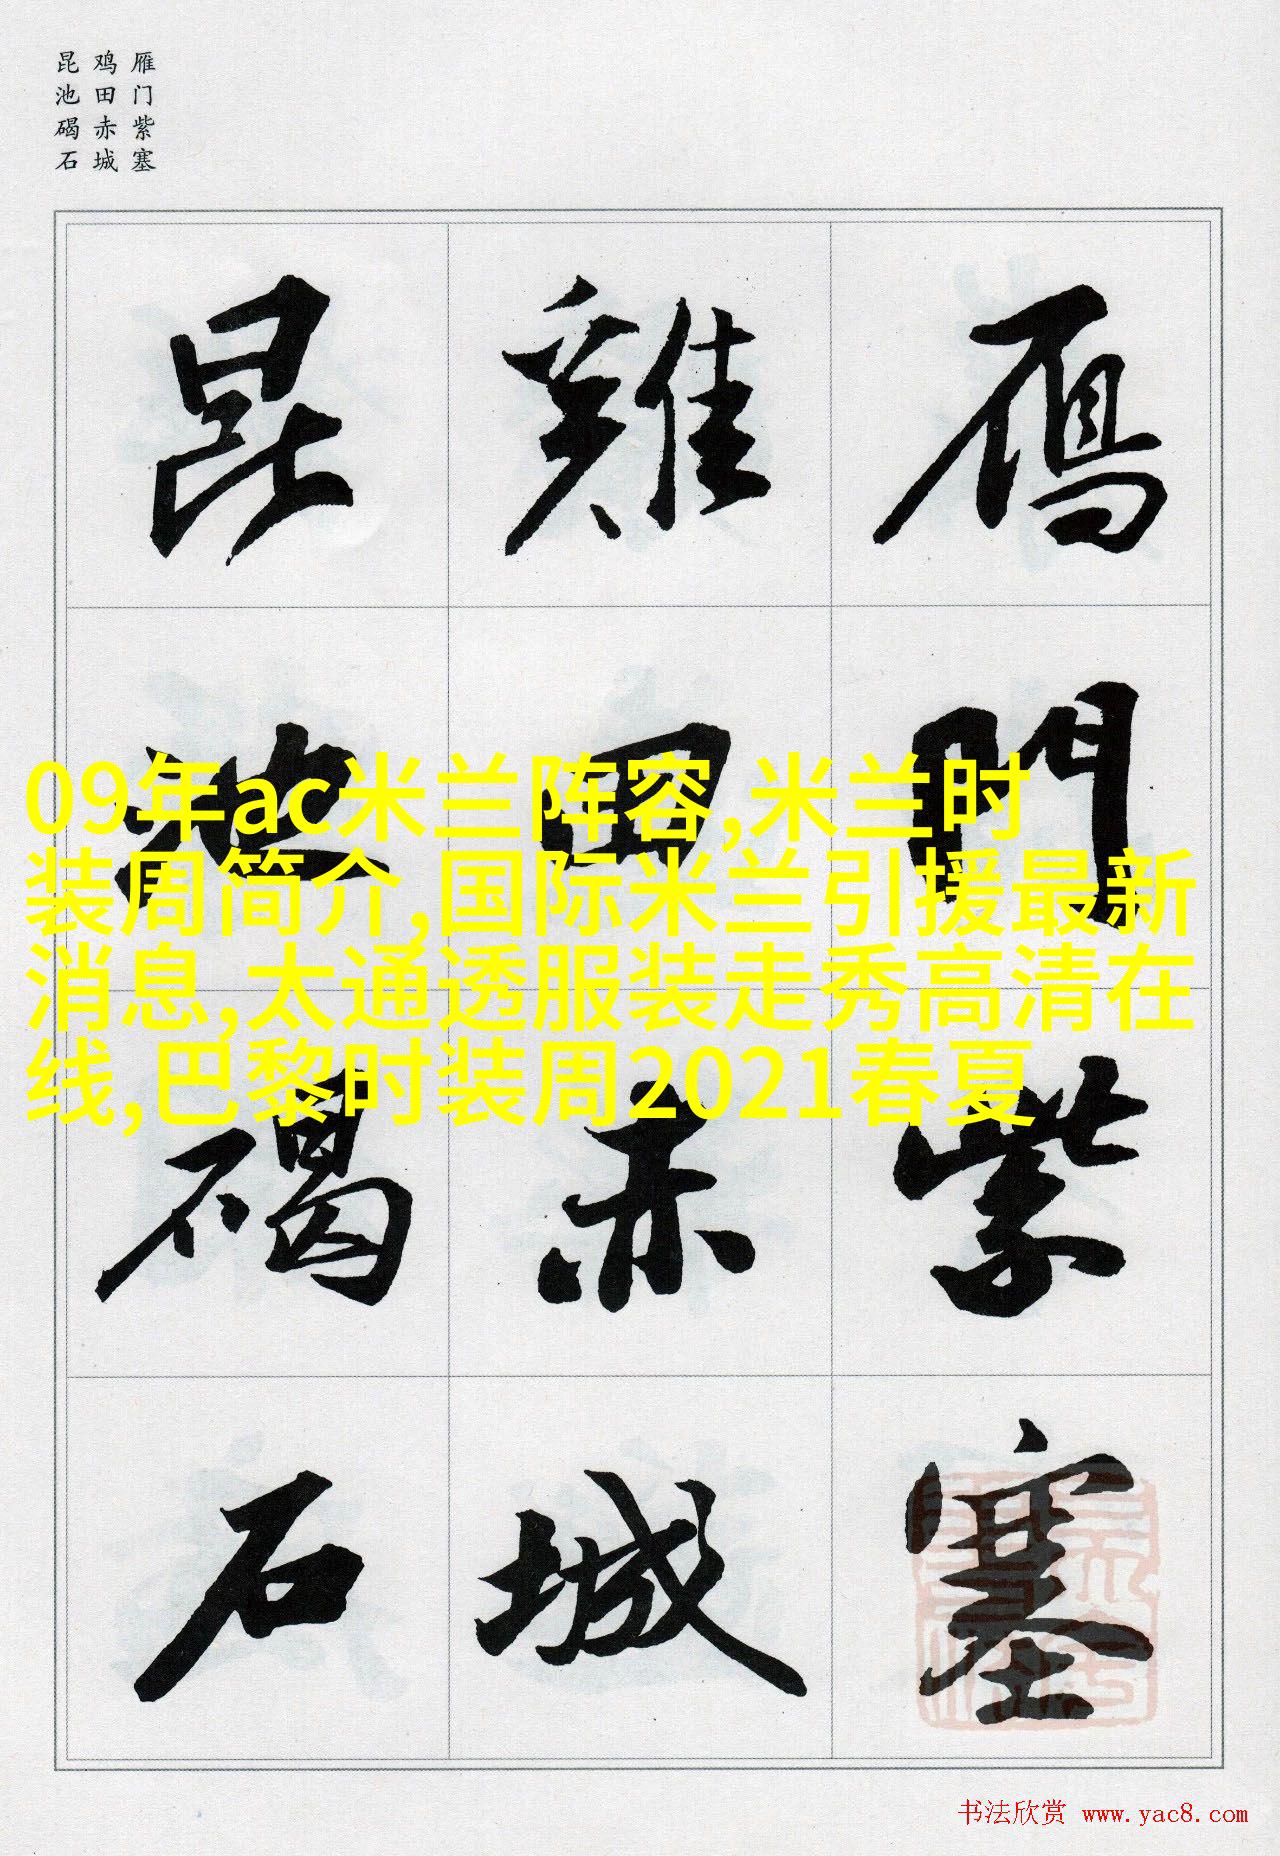 雁门紫塞
鸡田赤城
昆池碣石
鴈門紫塞
雞田赤城
昆池碣石
09年ac米兰阵容,米兰时
装周简介,国际米兰引援最新
消息,太通透服装走秀高清在
线,巴黎时装周2021春夏
书法欣赏 www.yac8.com